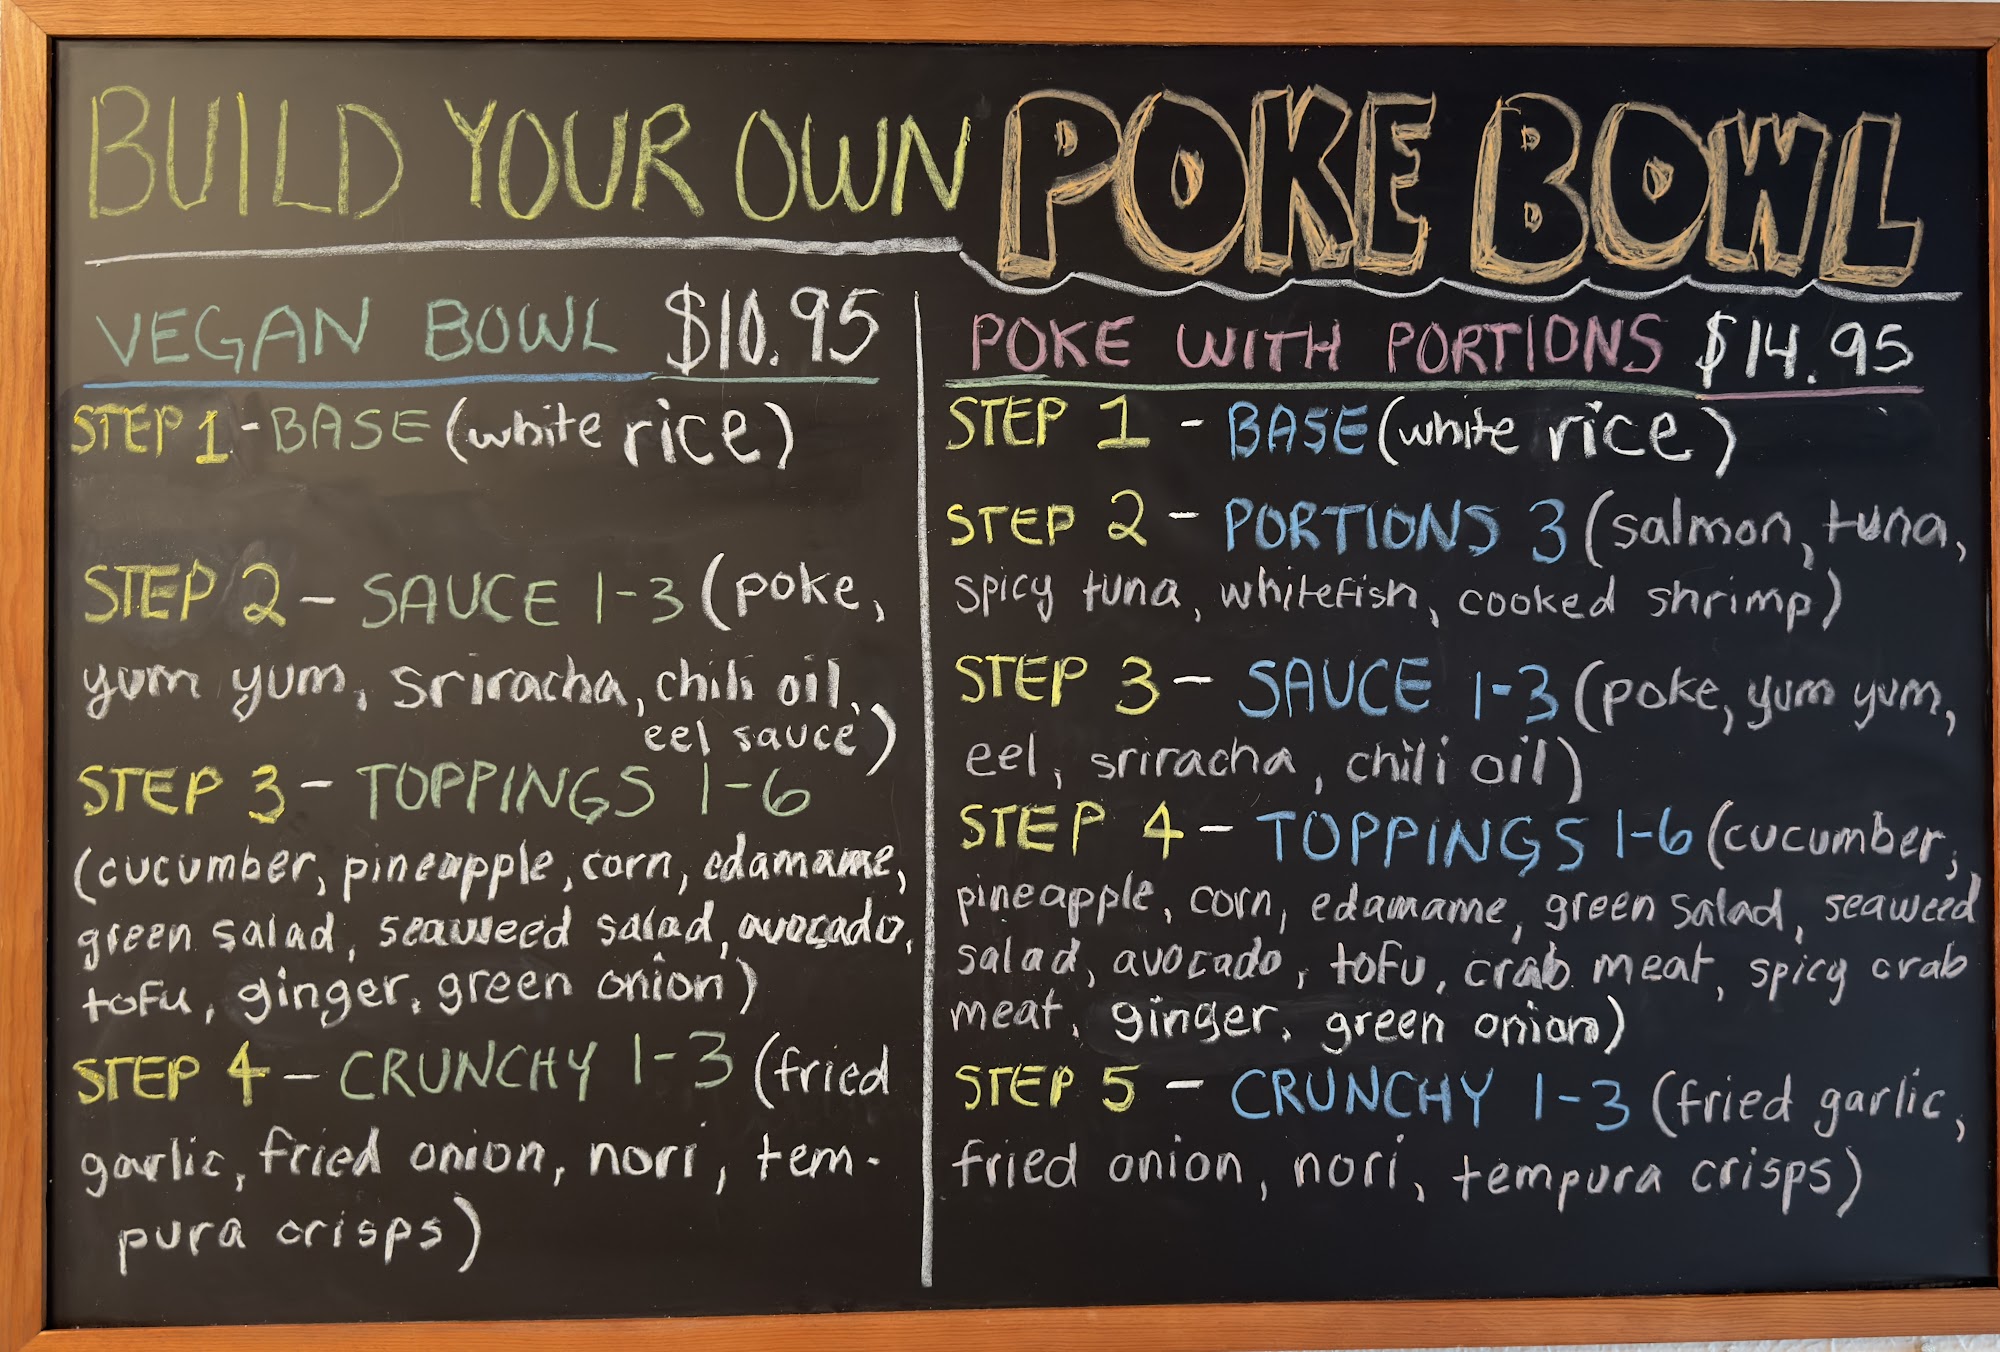 BUILD YOUR OWN POKE BOWL
VEGAN BOWL $10.95
STEP 1 - BASE (white rice)
STEP 2 - SAUCE 1-3 (poke,
yum yum, sriracha, chili oil,
eel sauce)
STEP 3 - TOPPINGS 1-6
(cucumber, pineapple, corn, edamame,
green salad, seaweed salad, avocado,
tofu, ginger, green onion)
STEP 4 - CRUNCHY 1-3 (fried
garlic, fried onion, nori, tem-
pura crisps)
POKE WITH PORTIONS $14.95
STEP 1 - BASE (white rice)
STEP 2 - PORTIONS 3 (salmon, tuna,
spicy tuna, whitefish, cooked shrimp)
STEP 3 - SAUCE 1-3 (poke, yum yum,
eel, sriracha, chili oil)
STEP 4 - TOPPINGS 1-6 (cucumber,
pineapple, corn, edamame, green salad, seaweed
salad, avocado, tofu, crab meat, spicy crab
meat, ginger, green onion)
STEP 5 - CRUNCHY 1-3 (fried garlic,
fried onion, nori, tempura crisps)